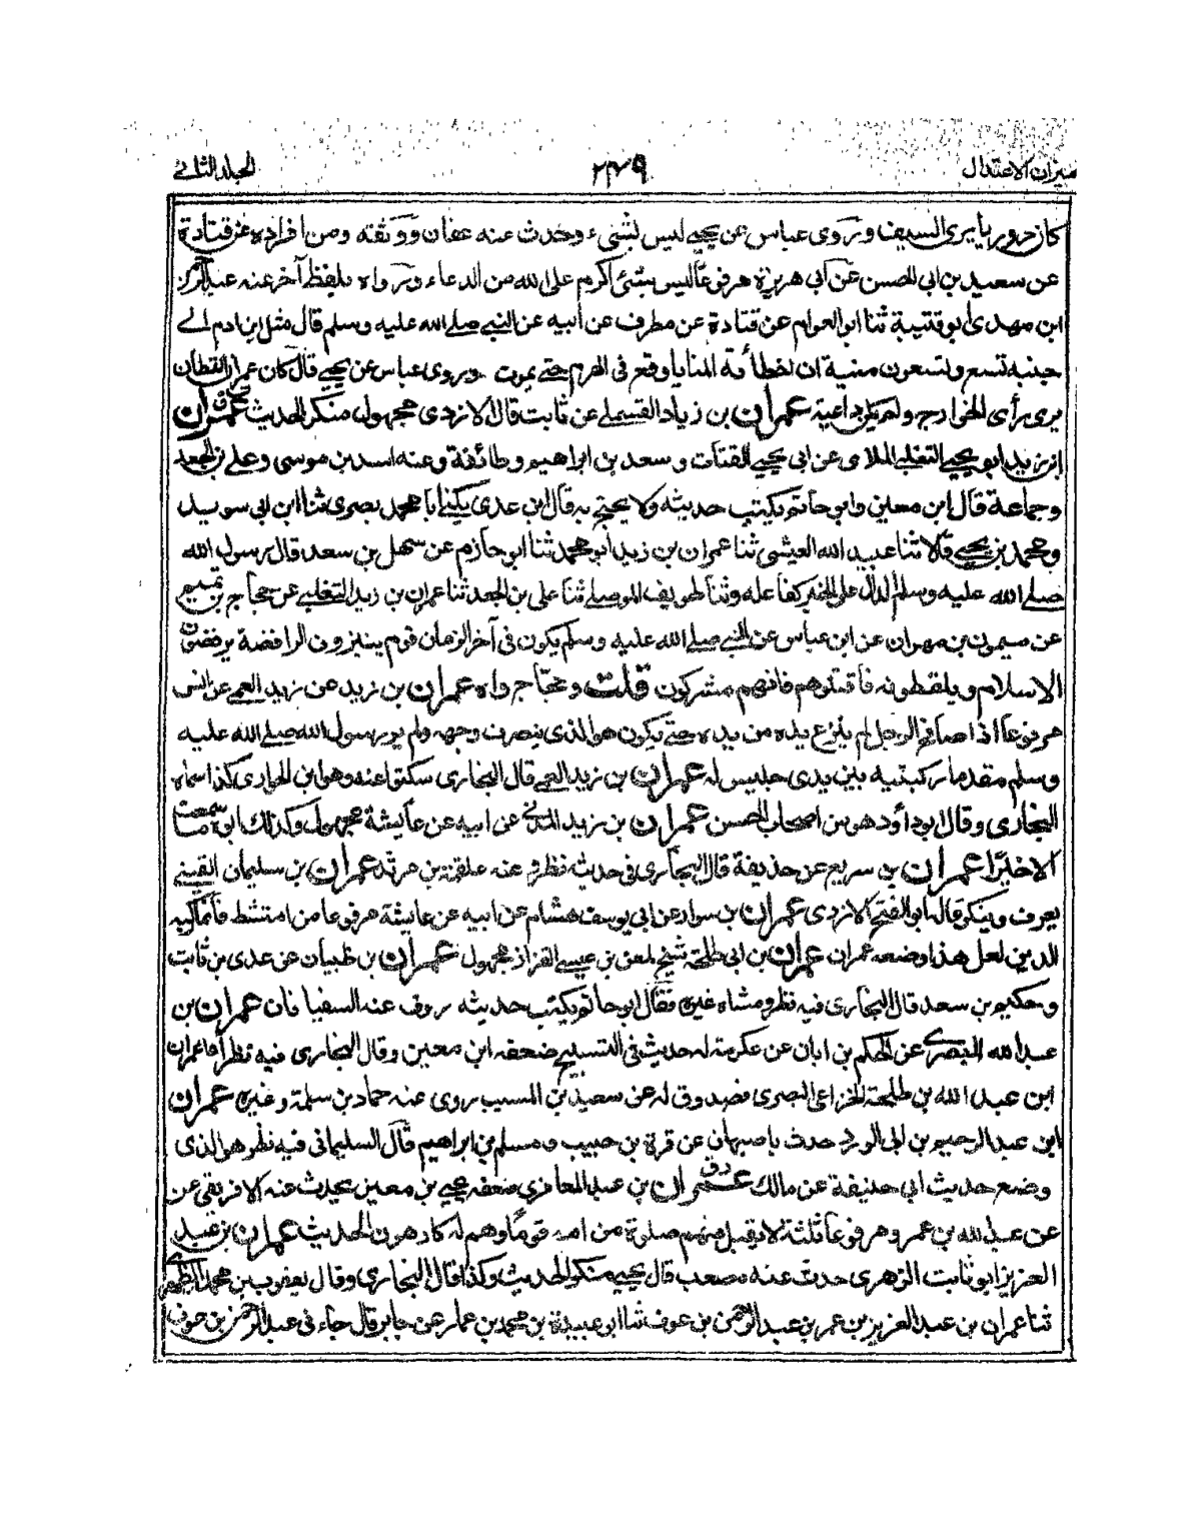 ميزان الاعتدال ٢٧٩ الجلد الثاني
كان حروريا يرى السيف وروى عباس عن يحيى ليس بشيء وحدث عنه عفان ووثقه ومن افراده عن قتادة
عن سعيد بن ابى الحسن عن أبي هريرة مرفوعا ليس بشئ اكرم على الله من الدعاء ورواه بلفظ آخر عنه عبد الرحمن
ابن مهدى ابو قتيبة ثنا ابو العوام عن قتادة عن مطرف عن ابيه عن النبي صلى الله عليه وسلم قال مثل ابن ادم الى
جنبه تسع وتسعون منية ان اخطأته المنايا وقع فى الهرم حتى يموت وروى عباس عن يحيى قال كان عمران القطان
يرى رأى الخوارج ولم يكن داعية عمران بن زياد القسملي عن ثابت قال الازدى مجهول منكر الحديث عمران
ابن زيد ابو يحيى التغلبي الملائى عن ابى يحيى القتات وسعد بن ابراهيم وطائفة وعنه اسد بن موسى وعلي بن الجعد
وجماعة قال ابن معين وابو حاتم يكتب حديثه ولا يحتج به قال ابن عدى يكنى ابا محمد بصرى ثنا ابن ابى سويد
ومحمد بن يحيى قالا ثنا عبيد الله العيشى ثنا عمران بن زيد ابو محمد ثنا ابو حازم عن سهل بن سعد قال رسول الله
صلى الله عليه وسلم الدال على الخير كفاعله وثنا طريف الموصلي ثنا على بن الجعد ثنا عمران بن زيد التغلبي عن حجاج بن تميم
عن ميمون بن مهران عن ابن عباس عن النبي صلى الله عليه وسلم يكون فى آخر الزمان قوم ينبزون الرافضة يرفضون
الاسلام ويلفظونه فاقتلوهم فانهم مشركون قلت وحجاج واه عمران بن زيد عن زيد العمى عن انس
مرفوعا اذا صافح الرجل لم ينزع يده من يده حتى يكون هو الذى ينصرف وجهه ولم ير رسول الله صلى الله عليه
وسلم مقدما ركبتيه بين يدى جليس له عمران بن زيد العمى قال البخارى سكتوا عنه وهو ابن الحوارى كذا سماه
البخارى وقال ابو داؤد هو من اصحاب الحسن عمران بن زيد المدني عن ابيه عن عائشة مجهول وكذلك ابوه
الاخير عمران بن سريع عن حذيفة قال البخارى فى حديثه نظر عنه علقمة بن مرثد عمران بن سليمان القيسي
يعرف وينكر قاله ابو الفتح الازدى عمران بن سوار عن ابى يوسف هشام عن ابيه عن عائشة مرفوعا من امتشط قائما ركبه
الدين لعل هذا وضعه عمران عمران بن ابى طلحة شيخ لمعن بن عيسى القزاز مجهول عمران بن ظبيان عن عدى بن ثابت
وحكيم بن سعد قال البخارى فيه نظر ومشاه غيره فقال ابو حاتم يكتب حديثه روى عنه السفيانان عمران بن
عبد الله البصرى عن الحكم بن ابان عن عكرمة له حديث فى التسبيح ضعفه ابن معين وقال البخارى فيه نظر اما عمران
ابن عبد الله بن طلحة الخزاعى البصرى فصدوق له عن سعيد بن المسيب روى عنه حماد بن سلمة وغيره عمران
ابن عبد الرحيم بن ابى الورد حدث باصبهان عن قرة بن حبيب ومسلم بن ابراهيم قال السليمانى فيه نظر هو الذى
وضع حديث ابى حنيفة عن مالك عمران بن عبد المعافرى ضعفه يحيى بن معين يحدث عنه الافريقى عن
عن عبد الله بن عمرو مرفوعا ثلثة لا يقبل منهم صلوة من ام قوما وهم له كارهون الحديث عمران بن عبد
العزيز ابو ثابت الزهرى حدث عنه مصعب قال يحيى منكر الحديث وكذا قال البخارى وقال يعقوب بن محمد الظهرى
ثنا عمران بن عبد العزيز بن عمر بن عبد الرحمن بن عوف ثنا ابو عبيدة بن محمد بن عمار عن جابر قال جاء فى عبد الرحمن بن عوف